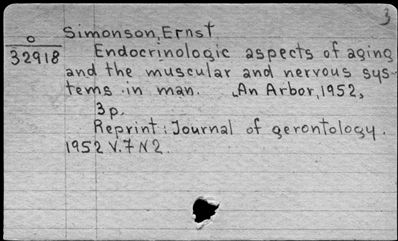 3
Simonson, Ernst
o
32918
Endocrinologic aspects of aging
and the muscular and nervous sys-
tems in man. An Arbor, 1952,
3 p.
Reprint: Journal of gerontology.
1952 V. 7 N 2.